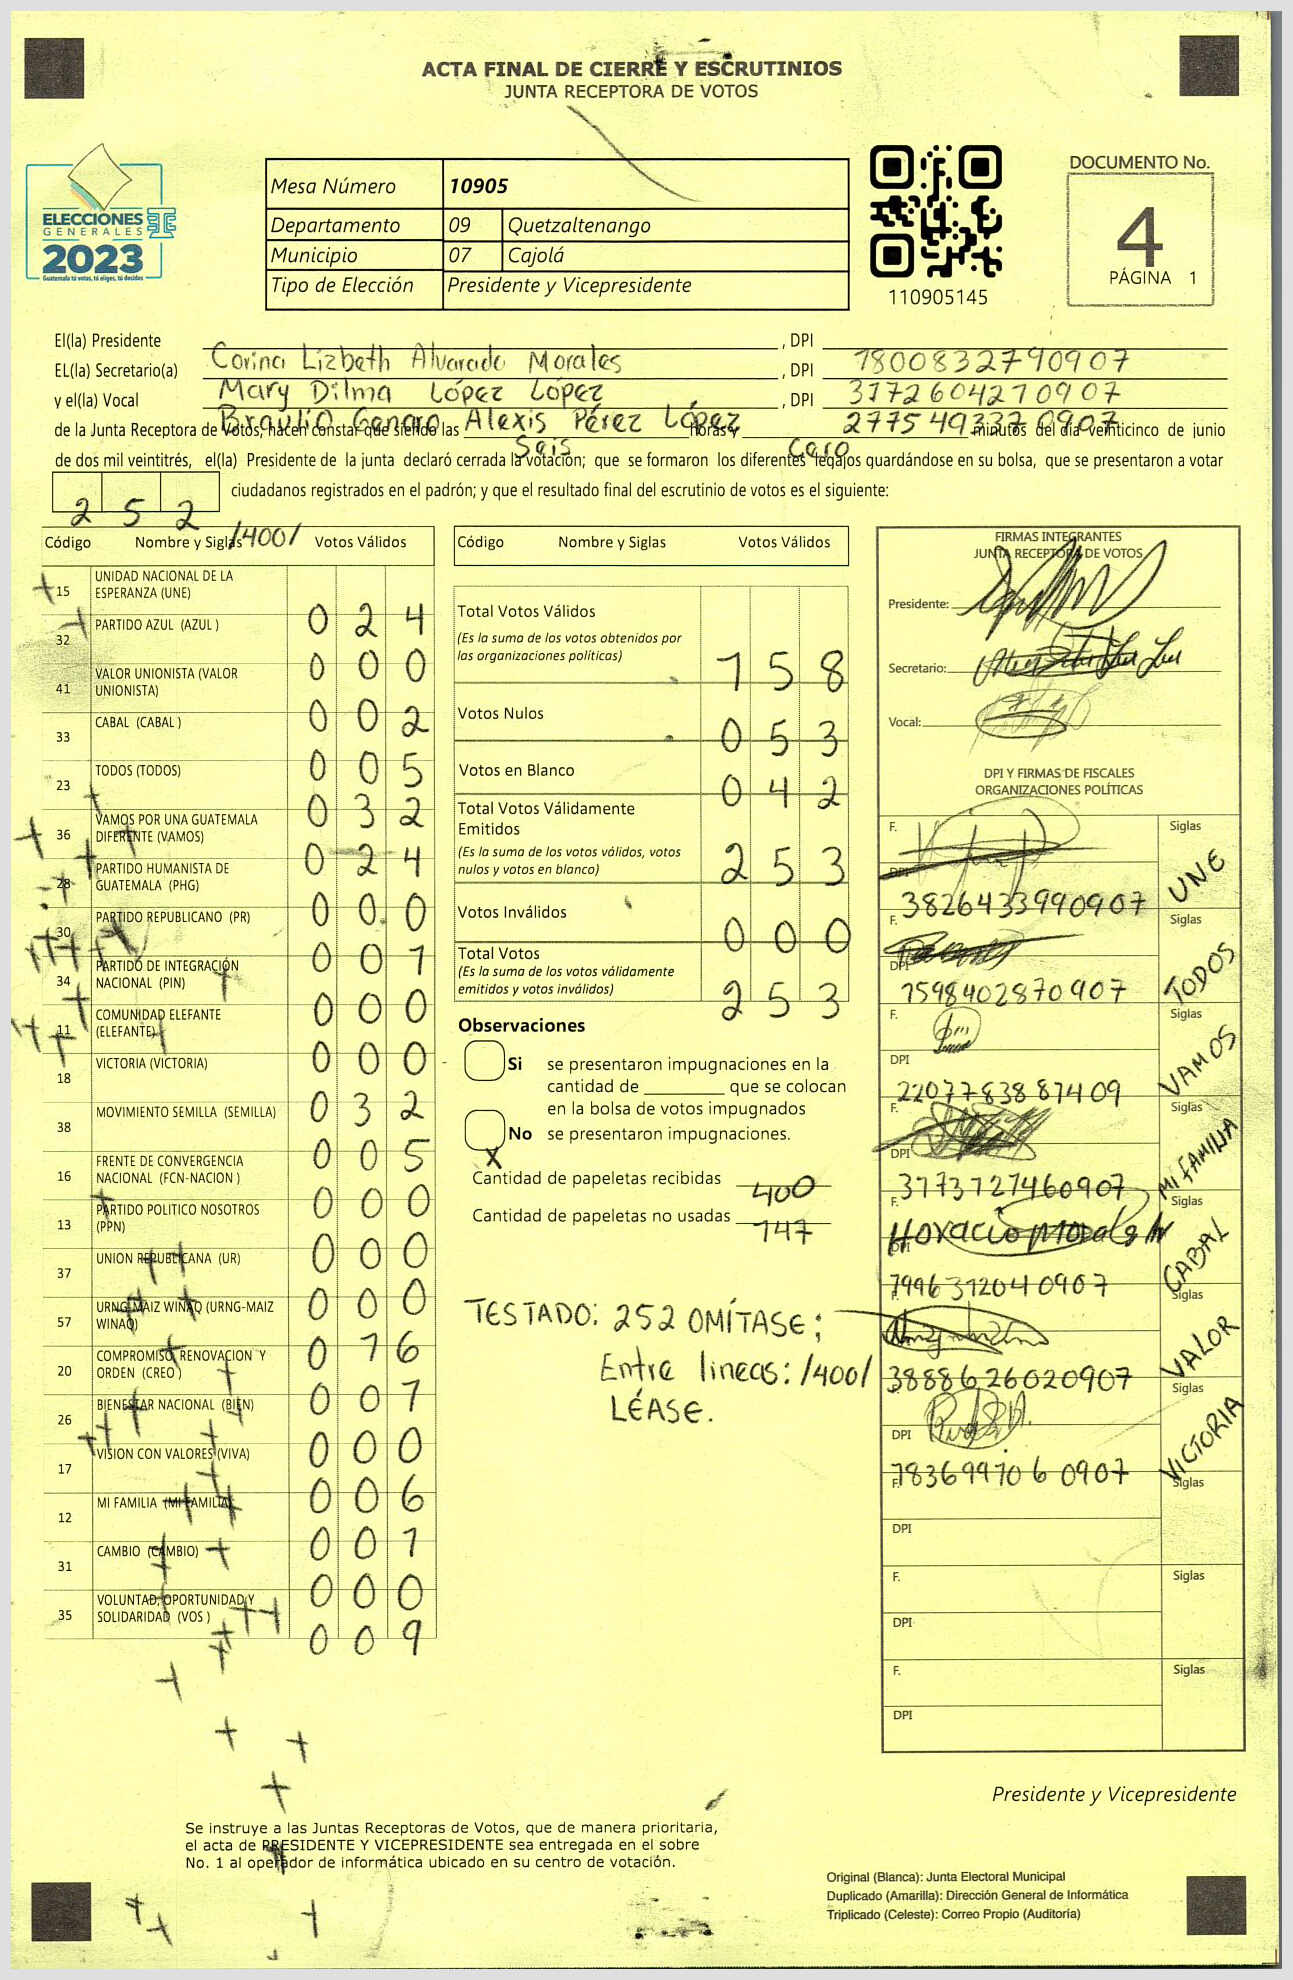 ACTA FINAL DE CIERRE Y ESCRUTINIOS
JUNTA RECEPTORA DE VOTOS
ELECCIONES
GENERALES
2023
Guatemala tú votas, tú eliges, tú decides
Mesa Número 10905
Departamento 09 Quetzaltenango
Municipio 07 Cajolá
Tipo de Elección Presidente y Vicepresidente
110905145
DOCUMENTO No.
4
PÁGINA 1
El(la) Presidente Corina Lizbeth Alvarado Morales, DPI 1800832790907
EL(la) Secretario(a) Mary Dilma López López, DPI 3172604270907
y el(la) Vocal Braulio Genaro Alexis Pérez López, DPI 2775493370907
de la Junta Receptora de Votos, hacen constar que siendo las Seis horas y Cero minutos del día veinticinco de junio
de dos mil veintitrés, el(la) Presidente de la junta declaró cerrada la votación; que se formaron los diferentes legajos guardándose en su bolsa, que se presentaron a votar
252 ciudadanos registrados en el padrón; y que el resultado final del escrutinio de votos es el siguiente:
/400/
Código Nombre y Siglas Votos Válidos
15 UNIDAD NACIONAL DE LA ESPERANZA (UNE) 024
32 PARTIDO AZUL (AZUL ) 000
41 VALOR UNIONISTA (VALOR UNIONISTA) 002
33 CABAL (CABAL ) 005
23 TODOS (TODOS) 032
36 VAMOS POR UNA GUATEMALA DIFERENTE (VAMOS) 024
28 PARTIDO HUMANISTA DE GUATEMALA (PHG) 000
30 PARTIDO REPUBLICANO (PR) 001
34 PARTIDO DE INTEGRACIÓN NACIONAL (PIN) 000
11 COMUNIDAD ELEFANTE (ELEFANTE) 000
18 VICTORIA (VICTORIA) 032
38 MOVIMIENTO SEMILLA (SEMILLA) 005
16 FRENTE DE CONVERGENCIA NACIONAL (FCN-NACION ) 000
13 PARTIDO POLITICO NOSOTROS (PPN) 000
37 UNION REPUBLICANA (UR) 000
57 URNG-MAIZ WINAQ (URNG-MAIZ WINAQ) 016
20 COMPROMISO, RENOVACION Y ORDEN (CREO ) 001
26 BIENESTAR NACIONAL (BIEN) 000
17 VISION CON VALORES (VIVA) 006
12 MI FAMILIA (MI FAMILIA) 001
31 CAMBIO (CAMBIO) 000
35 VOLUNTAD, OPORTUNIDAD Y SOLIDARIDAD (VOS ) 009
Código Nombre y Siglas Votos Válidos
Total Votos Válidos 158
(Es la suma de los votos obtenidos por
las organizaciones políticas)
Votos Nulos 053
Votos en Blanco 042
Total Votos Válidamente
Emitidos 253
(Es la suma de los votos válidos, votos
nulos y votos en blanco)
Votos Inválidos 000
Total Votos 253
(Es la suma de los votos válidamente
emitidos y votos inválidos)
Observaciones
Si se presentaron impugnaciones en la
cantidad de ________ que se colocan
en la bolsa de votos impugnados
X No se presentaron impugnaciones.
Cantidad de papeletas recibidas 400
Cantidad de papeletas no usadas 147
TESTADO: 252 OMÍTASE;
Entre lineas: /400/
LÉASE.
FIRMAS INTEGRANTES
JUNTA RECEPTORA DE VOTOS
Presidente:
Secretario:
Vocal:
DPI Y FIRMAS DE FISCALES
ORGANIZACIONES POLÍTICAS
F. Siglas UNE
DPI 3826433990907
F. Siglas TODOS
DPI 1598402870907
F. Siglas VAMOS
DPI 2207783887409
F. Siglas MI FAMILIA
DPI 3173727460907
F. Horacio Morales Siglas CABAL
DPI 1996312040907
F. Siglas VALOR
3888626020907
F. Siglas VICTORIA
DPI 1836997060907
F. Siglas
DPI
F. Siglas
DPI
F. Siglas
DPI
Presidente y Vicepresidente
Se instruye a las Juntas Receptoras de Votos, que de manera prioritaria,
el acta de PRESIDENTE Y VICEPRESIDENTE sea entregada en el sobre
No. 1 al operador de informática ubicado en su centro de votación.
Original (Blanca): Junta Electoral Municipal
Duplicado (Amarilla): Dirección General de Informática
Triplicado (Celeste): Correo Propio (Auditoría)